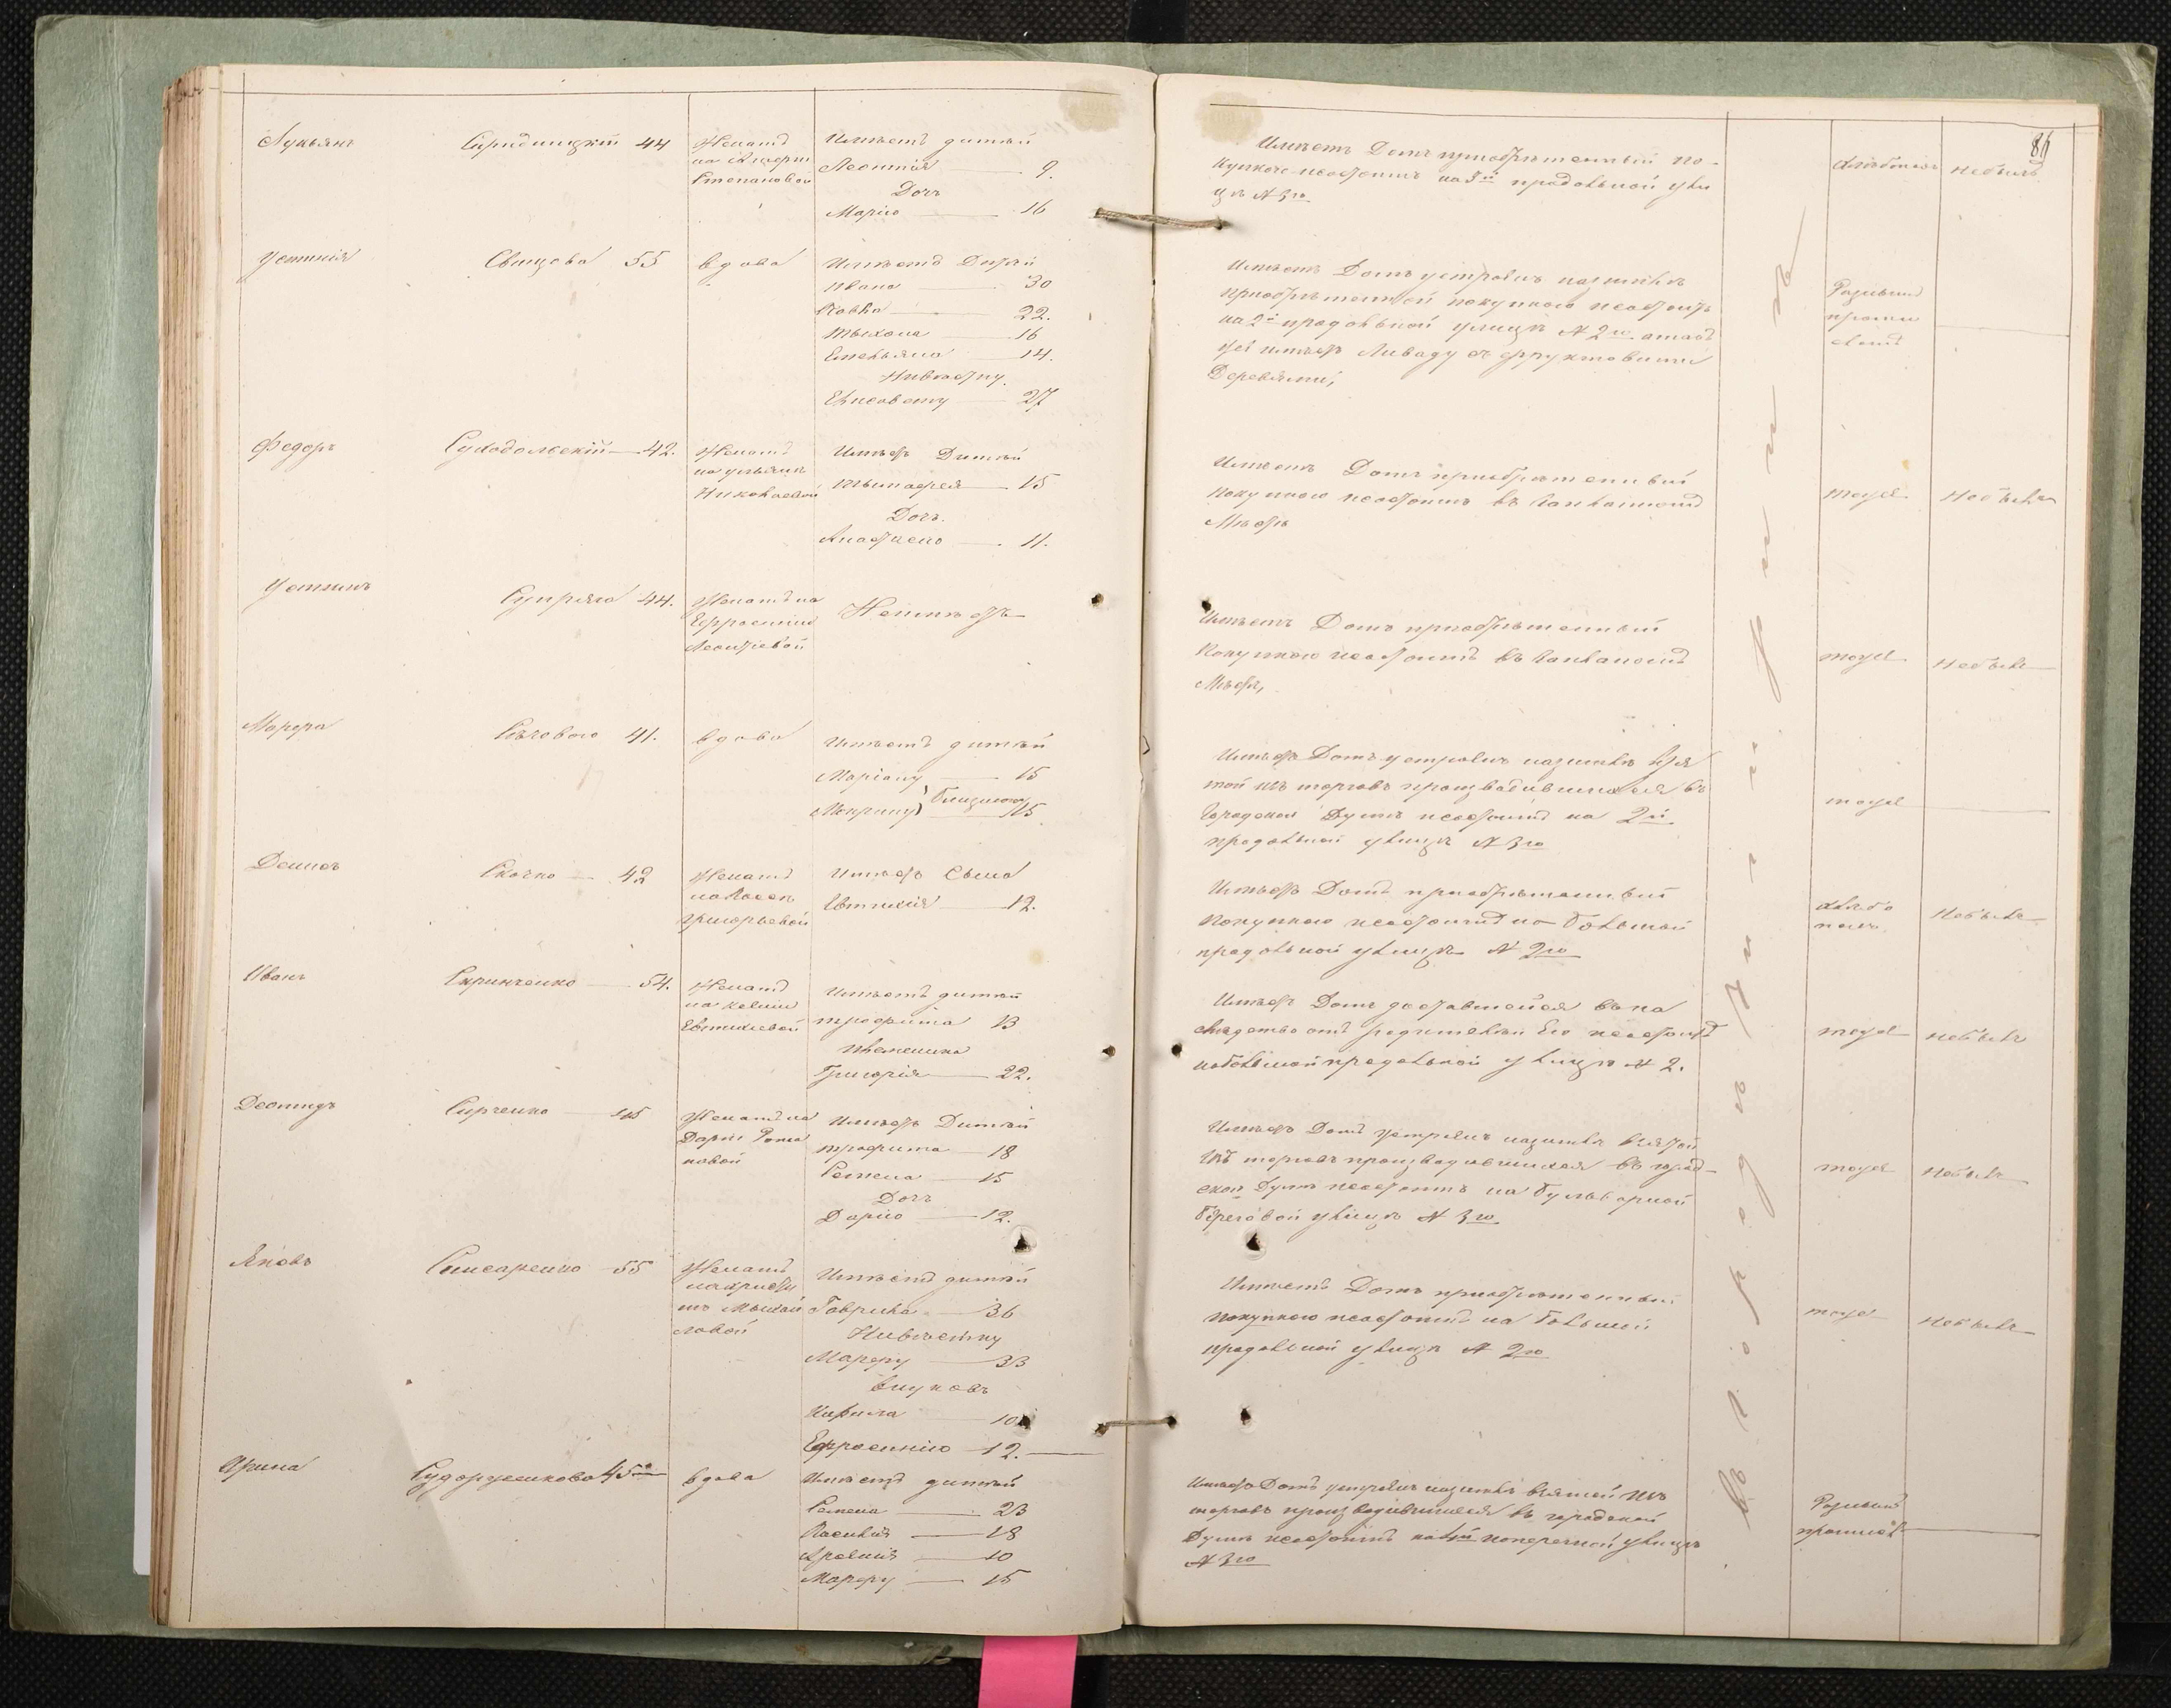 86
Лукьянъ
44
Женатъ
Степановой
Имѣетъ дитей
Леонтія 9.
Дочь
Марію 16
Имѣетъ Домъ приобрѣтенный по-
купкою состоитъ на 3й продольной ули
цѣ № 3го
Хлѣбопаш небылъ
Устинія
Свищова 55
вдова
Имѣетъ Дитей
Ивана 30
Якова 22.
Тихона 16
Емельяна 14.
Нивѣстку
Елисовету 27
Имѣетъ Домъ устроенъ наземлѣ
приобрѣтенной покупкою состоитъ
на 2й продольной улицѣ № 2го
имѣетъ Ливаду съ фруктовыми
Деревями,
Разными
промы
Федоръ
Суходольскій 42.
Женатъ
на Ульянѣ
Николаевой
Имѣетъ Дитей
Тимофея 15
Дочь
Анастасію 11.
Имѣетъ Домъ приобрѣтенный
покупкою состоитъ въ
Мѣстѣ
тоуже Небылъ
Устинъ
Супряга 44.
Женатъ на
Ефросиніи
Леонтьевой
Неимѣетъ
Имѣетъ Домъ приобрѣтенный
Покупкою состоитъ въ
Мѣстѣ,
тоуже Небылъ
Марфа
41.
вдова
Имѣетъ дитей
Маріану 15
Мокрину близнята 15
Имѣетъ Домъ устроенъ наземлѣ взя
той изъ торговъ производившихся въ
Городской Думѣ состоитъ на 2й
продольной улицѣ № 3го
тоуже
Демидъ
Скочко 42
Женатъ
Григорьевой
Имѣетъ Сына
Евтихія 12.
Имѣетъ Домъ приобрѣтенный
Покупкою состоитъ на Большой
продольной улицѣ № 2го
Хлѣбо
паш
Небылъ
Иванъ
Скринченко 54.
Женатъ
на Ксеніи
Евтихіевой
Имѣетъ дитей
Трофима 13
племенника
Григорія 22.
Имѣетъ Домъ доставшейся въ на
слѣдство отъ родителей Его состоитъ
на большой продольной улицѣ № 2.
тоуже небылъ
Леонидъ
Сирченко 45
Женатъ на
Даріи Рома
новой
Имѣетъ Дитей
Трофима 18
Семена 15
Дочь
Дарію 12.
Имѣетъ Домъ устроенъ наземлѣ взятой
изъ торговъ производившихся въ город-
ской Думѣ состоитъ на Бульварной
Береговой улицѣ № 3го
тоуже Небылъ
Яковъ
Слисаренко 55
Женатъ
Михай
ловой
Имѣетъ дитей
Гаврила 36
Нивѣстку
Марфу 33
внуковъ
Кирила 10
Ефросинію 12.
Имѣетъ Домъ приобрѣтенный
покупкою состоитъ на Большой
продольной улицѣ № 2го
тоуже Небылъ
Ирина
45
вдова
Имѣетъ дитей
Семена 23
Василія 18
10
Марфу 15
Имѣетъ Домъ устроенъ наземлѣ взятой изъ
торговъ производившихся въ городской
Думѣ состоитъ на поперечной улицѣ
№ 3го
Разными
промысл